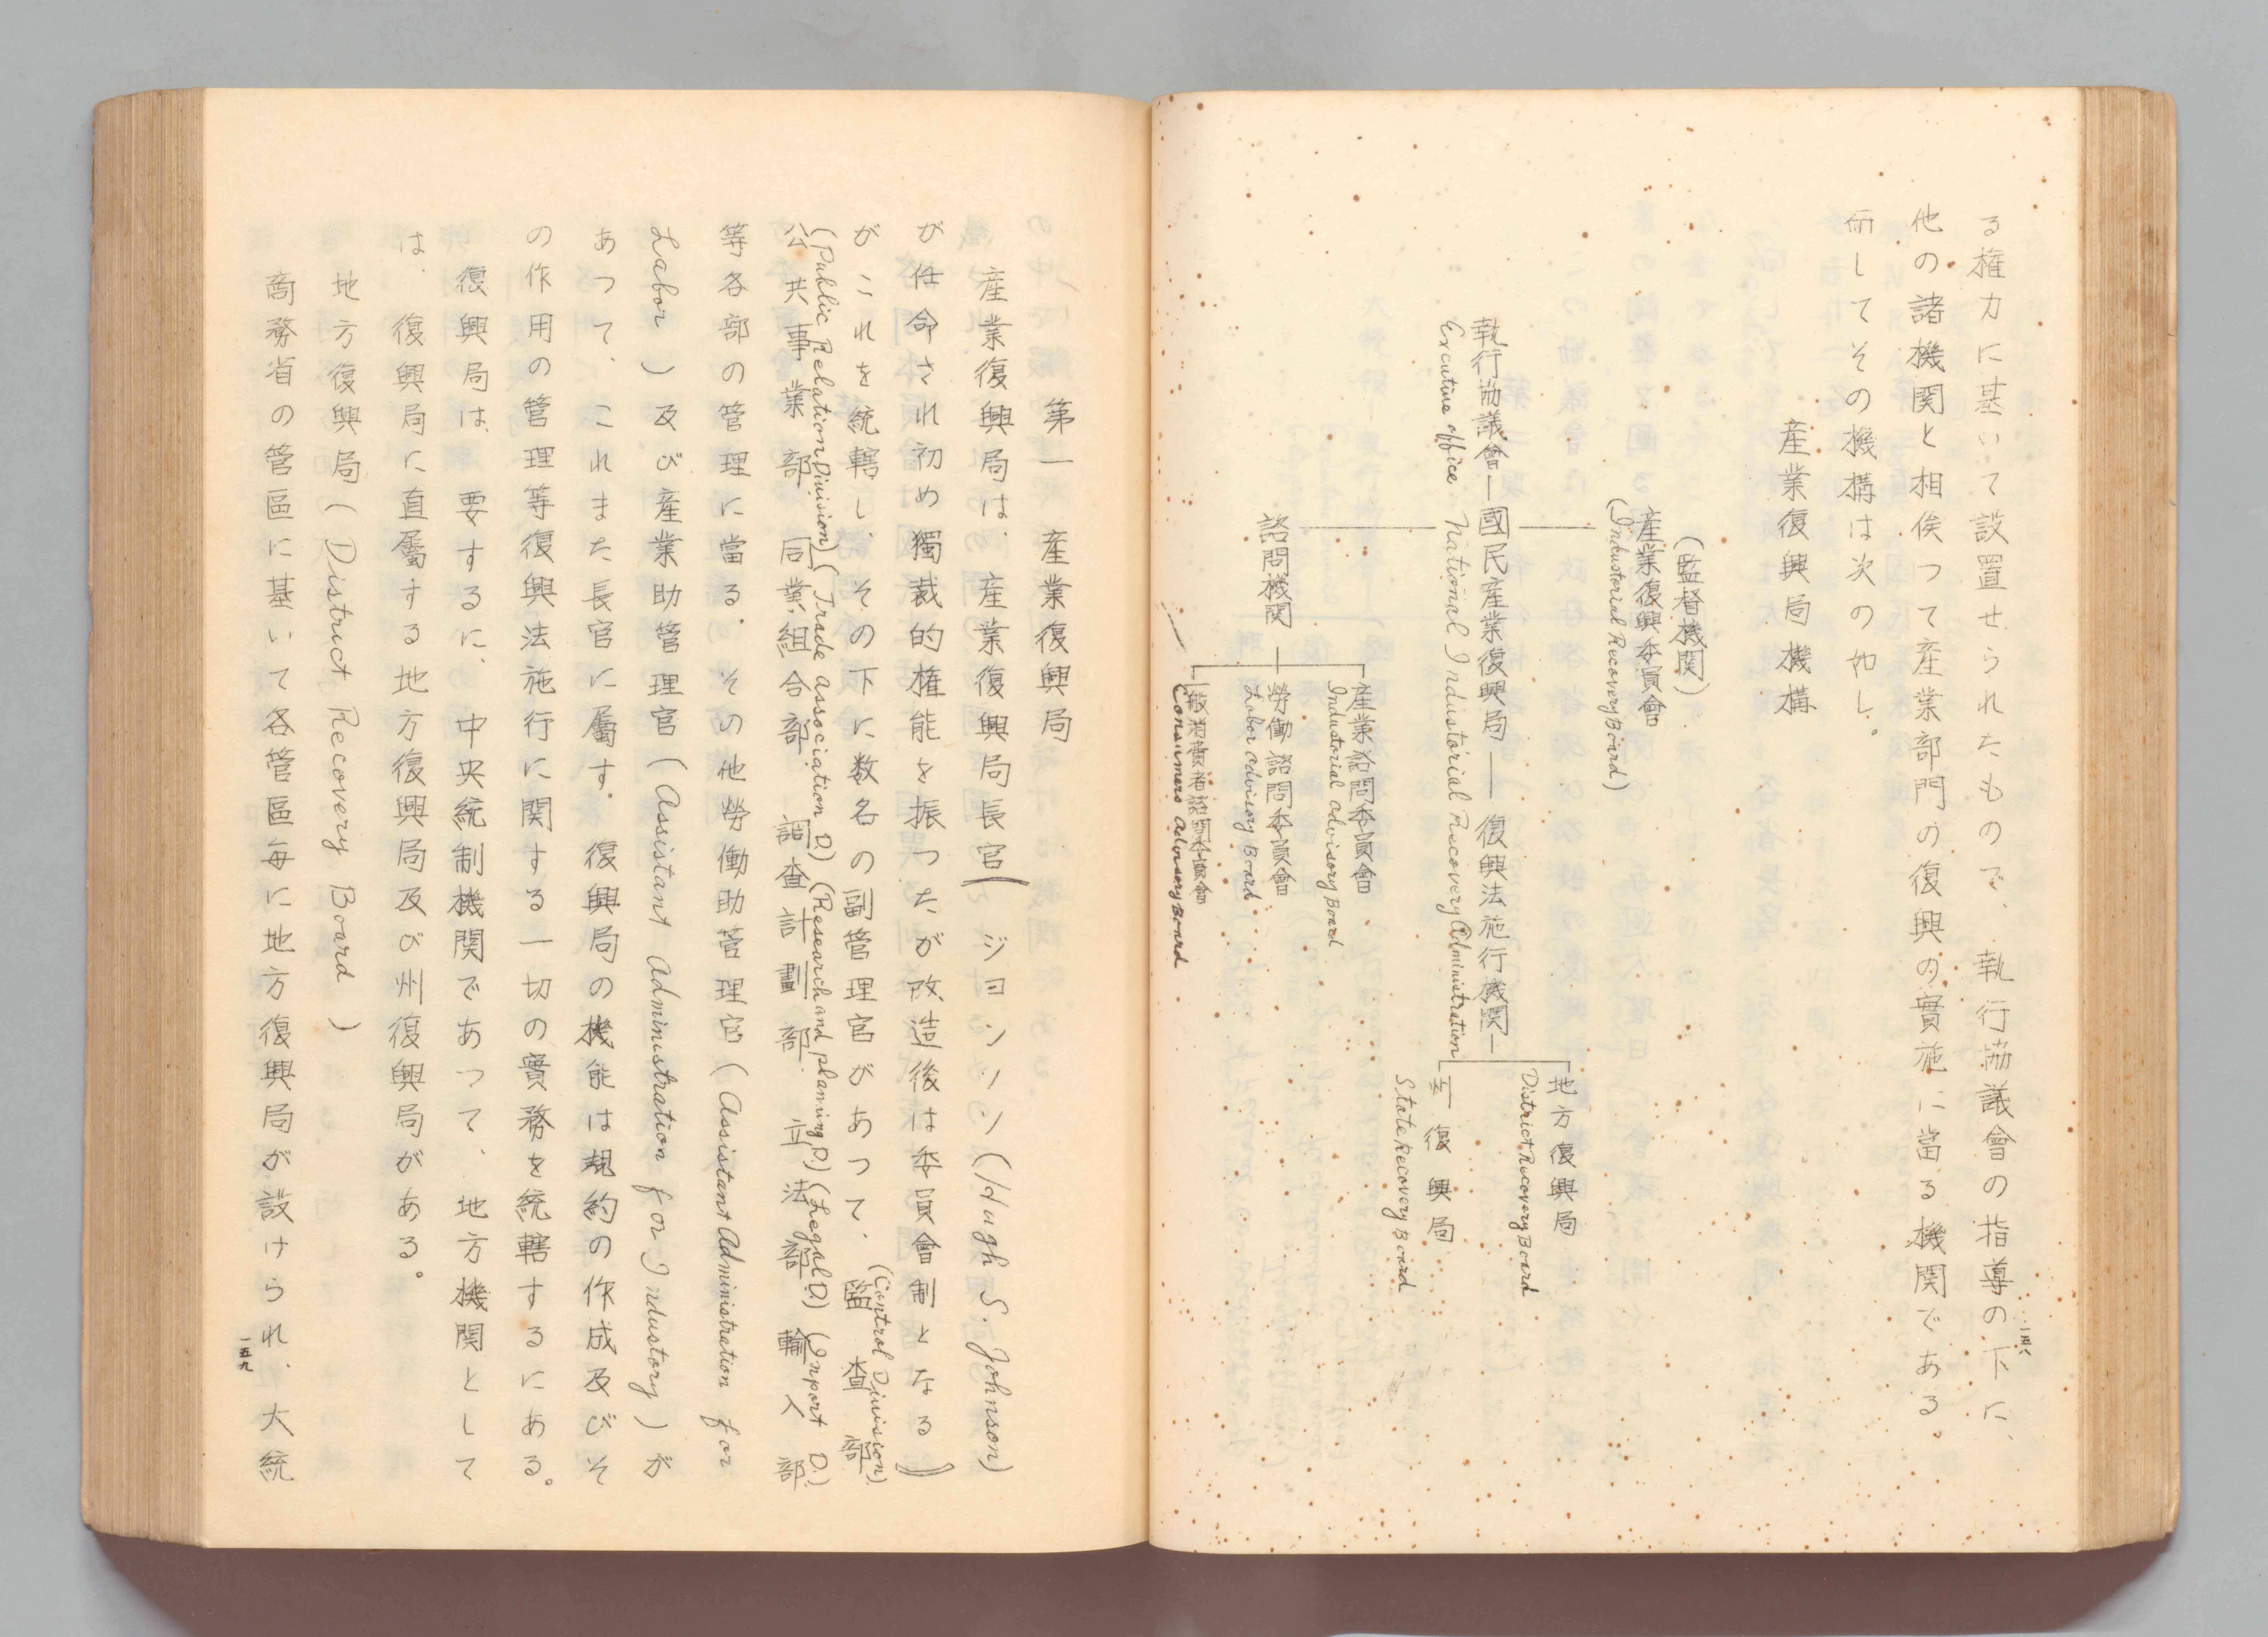 る権力に基いて設置せられたもので、執行協議會の指導の下に、
他の諸機関と相俟つて産業部門の復興の實施に當る機関である。
而してその機構は次の如し。
産業復興局機構
(監督機関)
産業復興委員會
(Industorial Recovery Board)
執行協議會―國民産業復興局――復興法施行機関―
Excutive office National Industorial Recovery Administration
地方復興局
District Recovery Board
復興局
State Recovery Board
諮問機関―
産業諮問委員會
Industorial advisory Board
労働諮問委員會
Labor advisory Board
一般消費者諮問委員會
Consumers advisory Board
一五八
第一 産業復興局
産業復興局は、産業復興局長官(ジヨンソン(Hugh S. Johnson)
が任命され初め獨裁的権能を振つたが改造後は委員會制となる)
がこれを統轄し、その下に数名の副管理官があつて、監査部
(Control Division)
(Public Relation Division) (Trade association D.) (Research and planning D.) (Legal D.) (Inport D.)
公共事業部 同業組合部 調査計劃部 立法部 輸入部
等各部の管理に當る。その他勞働助管理官(Assistant Administration for
Labor)及び産業助管理官(Assistant Administration for Industory)が
あつて、これまた長官に屬す。復興局の機能は規約の作成及びそ
の作用の管理等復興法施行に関する一切の實務を統轄するにある。
復興局は、要するに、中央統制機関であつて、地方機関として
は、復興局に直屬する地方復興局及び州復興局がある。
地方復興局(District Recovery Board)
商務省の管區に基いて各管區毎に地方復興局が設けられ、大統
一五九